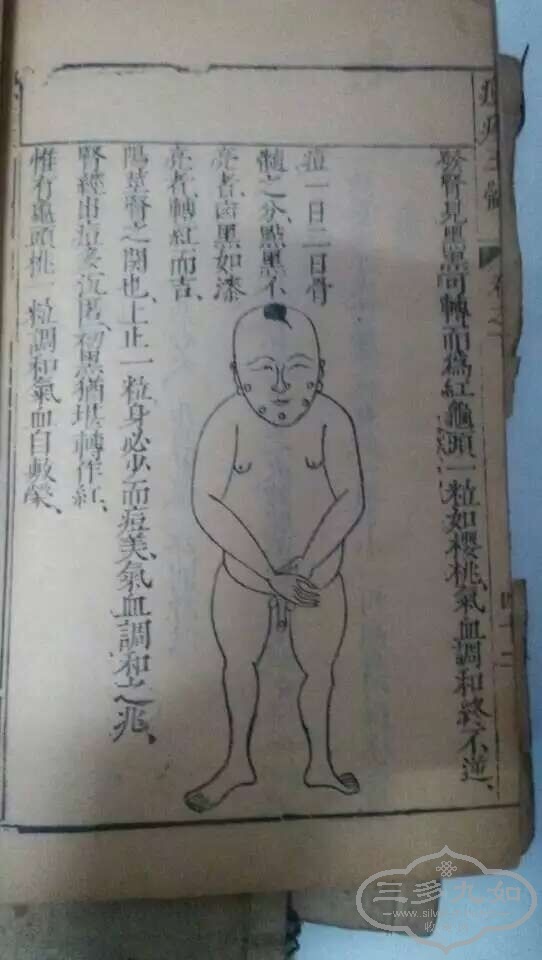 發腎見黑黑可轉而爲紅龜頭一粒如櫻桃氣血調和終不逆、
痘一日二日骨
髓之分、點黑不
亮者、凶黑如漆
亮者、轉紅而吉、
陽莖腎之関也、上止一粒、身必少而痘美、氣血調和之兆、
腎經出痘多沉匿、初黑猶堪轉作紅、
惟有龜頭桃一粒、調和氣血自敷榮、
四十二
三多九如
www.silv
收